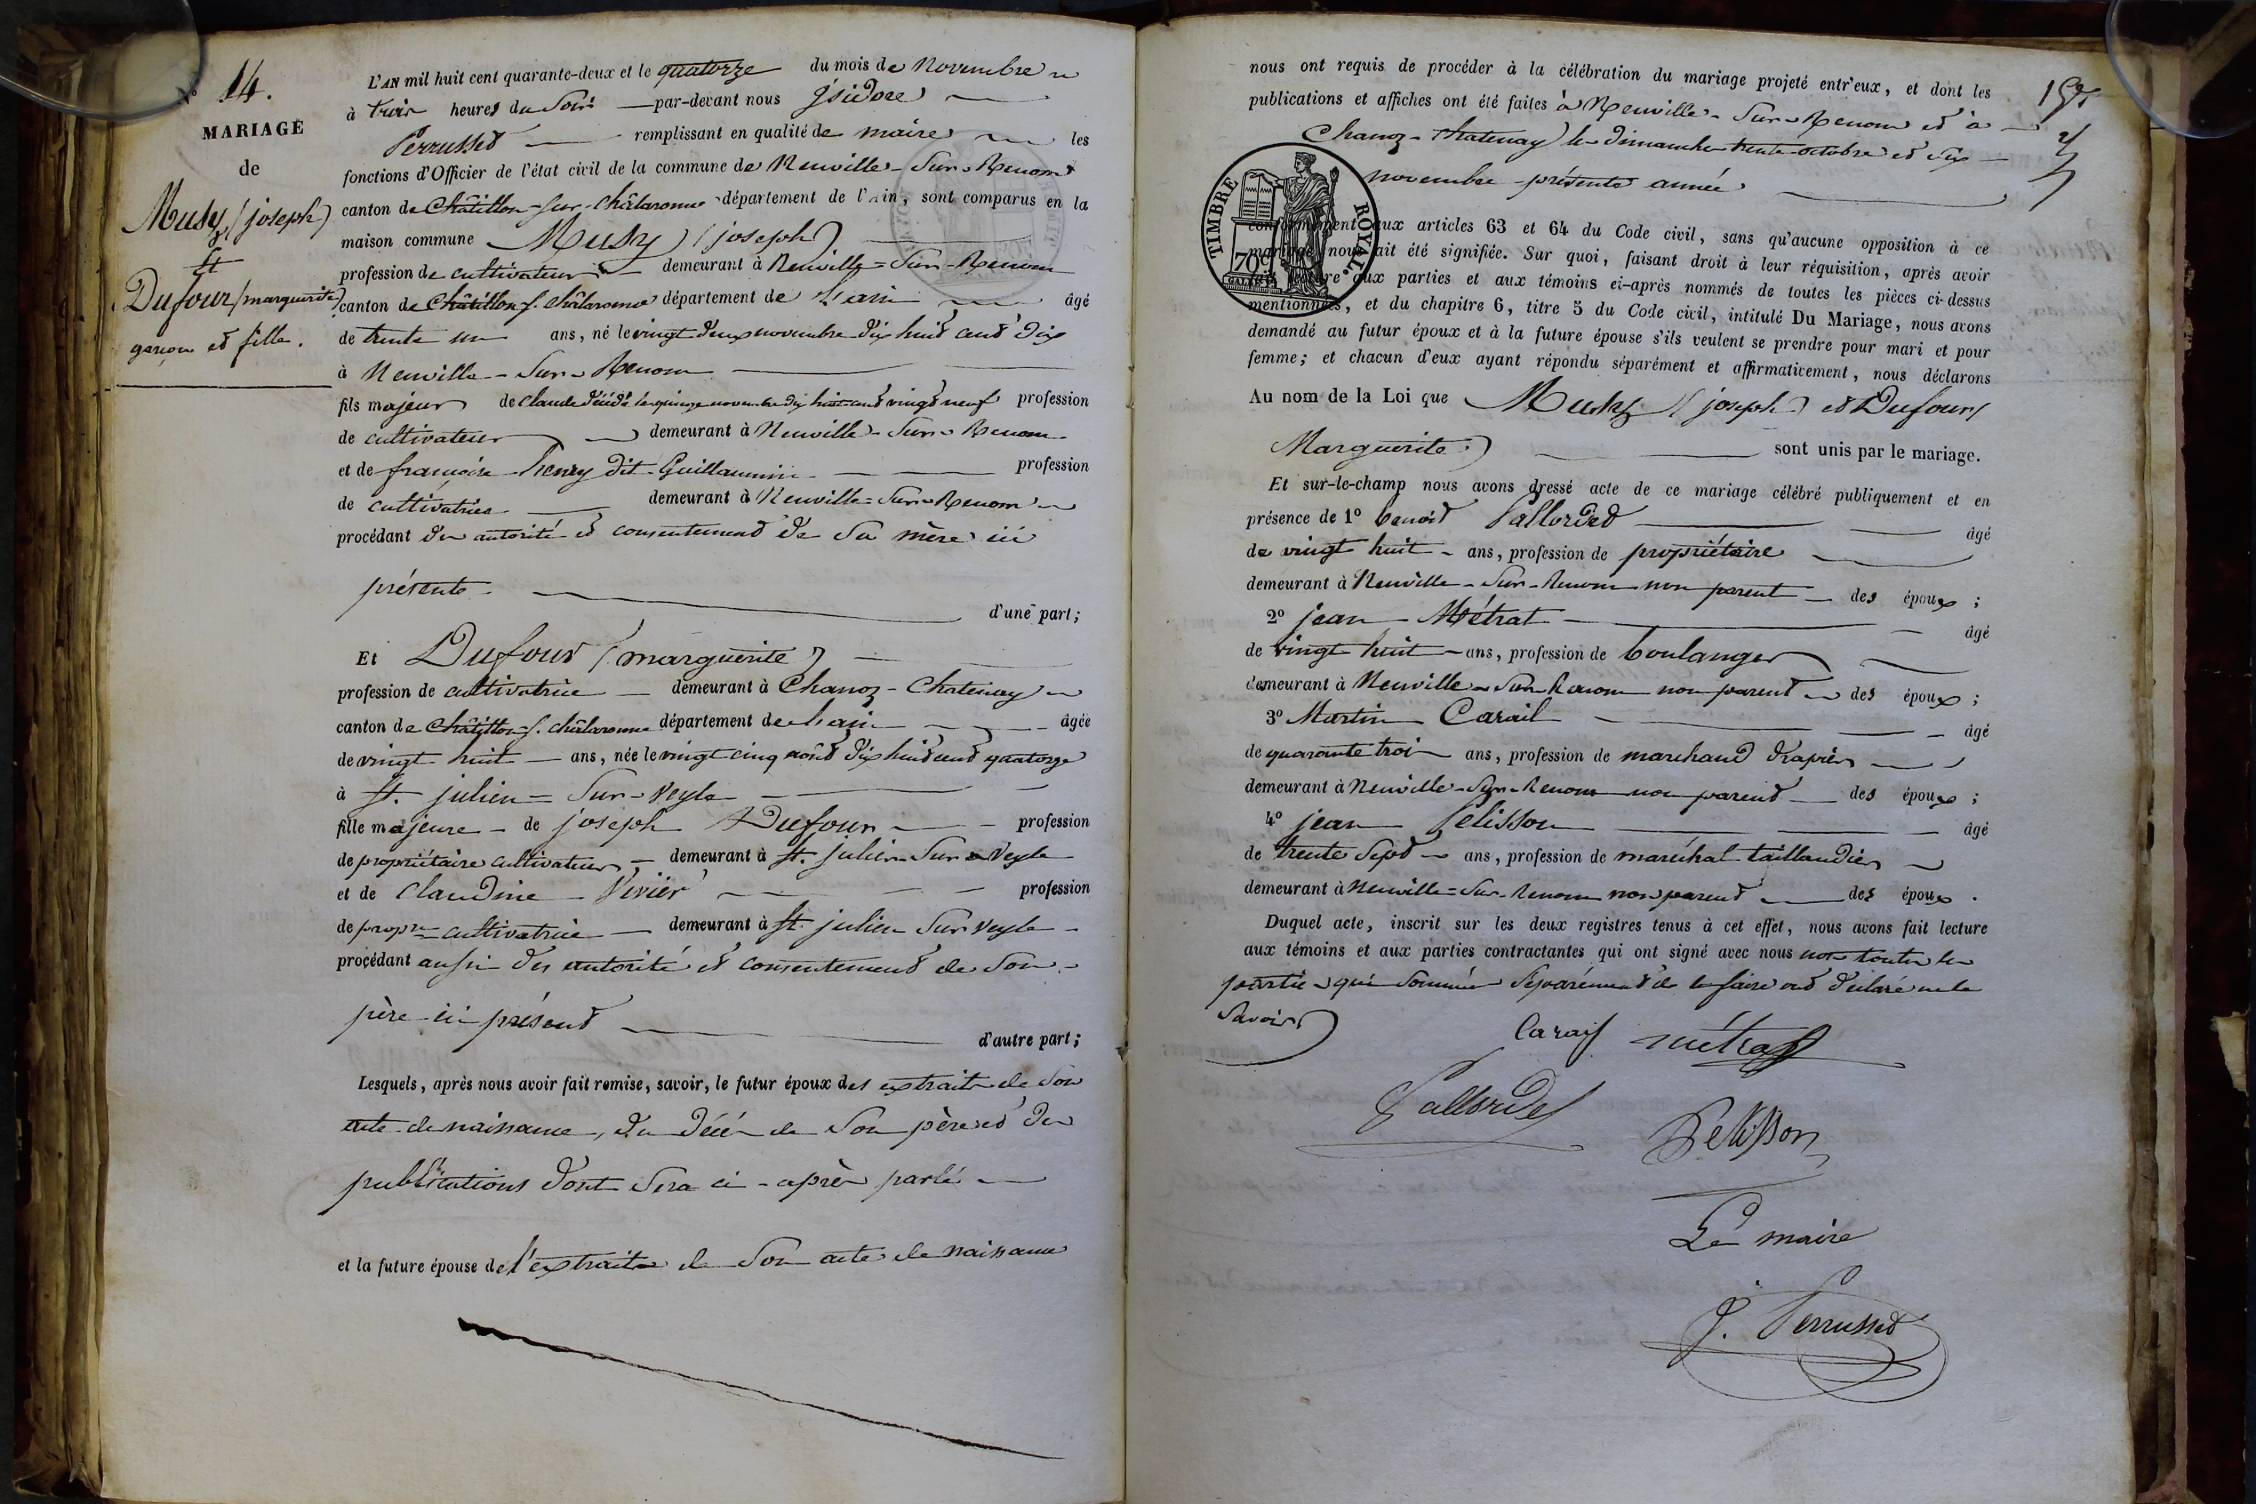 N° 14.
MARIAGE
de
Musy (joseph)
Et
Dufour (marguerite)
garçon et fille.
L'AN mil huit cent quarante-deux et le quatorze du mois de Novembre
à trois heures du Soir par-devant nous Isidore
Perrusset remplissant en qualité de maire les
fonctions d'Officier de l'état civil de la commune de Neuville-Sur-Renom
canton de Châtillon-sur-châlaronne département de l'Ain, sont comparus en la
maison commune Musy (joseph)
profession de cultivateur demeurant à Neuville=Sur-Renom
canton de Châtillon s. châlaronne département de L'ain âgé
de trente un ans, né le vingt deux novembre dix huit cent dix
à Neuville-Sur-Renom
fils majeur de Claude décédé le quinze novembre dix huit cent vingt neuf profession
de cultivateur demeurant à Neuville-Sur-Renom
et de françoise henry dit Guillaumin profession
de cultivatrice demeurant à Neuville=Sur-Renom
procédant de autorité et consentement de Sa mère ici
présente
d'une part;
Et Dufour (marguerite)
profession de cultivatrice demeurant à Chanoz-Chatenay
canton de Châtillon s. châlaronne département de L'ain âgée
de vingt huit ans, née le vingt cinq août dix huit cent quatorze
à St. julien=Sur-Veyle
fille majeure de joseph Dufour profession
de propriétaire cultivateur demeurant à St. julien Sur Veyle
et de Claudine Vivier profession
de propre cultivatrice demeurant à St. julien Sur Veyle
procédant aussi des autorité et consentement de Son
père ici présent
d'autre part;
Lesquels, après nous avoir fait remise, savoir, le futur époux des extraits de Son
acte de naissance, du décès de Son père et des
publications dont Sera ci-après parlé
et la future épouse de l'extrait de Son acte de naissance
nous ont requis de procéder à la célébration du mariage projeté entr'eux, et dont les
publications et affiches ont été faites à Neuville-Sur-Renom et à
Chanoz-Chatenay les dimanches trente octobre et six
novembre présente année
TIMBRE ROYAL.
70c
conformément aux articles 63 et 64 du Code civil, sans qu'aucune opposition à ce
mariage nous ait été signifiée. Sur quoi, faisant droit à leur réquisition, après avoir
fait lecture aux parties et aux témoins ci-après nommés de toutes les pièces ci-dessus
mentionnées, et du chapitre 6, titre 5 du Code civil, intitulé Du Mariage, nous avons
demandé au futur époux et à la future épouse s'ils veulent se prendre pour mari et pour
femme; et chacun d'eux ayant répondu séparément et affirmativement, nous déclarons
Au nom de la Loi que Musy (joseph) et Dufour
Marguerite) sont unis par le mariage.
Et sur-le-champ nous avons dressé acte de ce mariage célébré publiquement et en
présence de 1° benoît Pallordet âgé
de vingt huit ans, profession de propriétaire
demeurant à Neuville-Sur-Renom non parent des époux;
2° jean Métrat âgé
de vingt huit ans, profession de boulanger
demeurant à Neuville-Sur-Renom non parent des époux;
3° Martin Carail âgé
de quarante troi ans, profession de marchand drapier
demeurant à Neuville-Sur-Renom non parent des époux;
4° jean Pelisson âgé
de trente Sept ans, profession de maréchal taillandier
demeurant à Neuville=Sur-Renom non parent des époux.
Duquel acte, inscrit sur les deux registres tenus à cet effet, nous avons fait lecture
aux témoins et aux parties contractantes qui ont signé avec nous non toutes les
parties qui Sommées Séparément de le faire ont déclaré ne le
Savoir
Carail métrat
Pallordet
Pelisson
Le maire
J. Perrusset